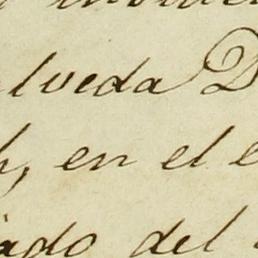 lveda D
h, en el e
ado del